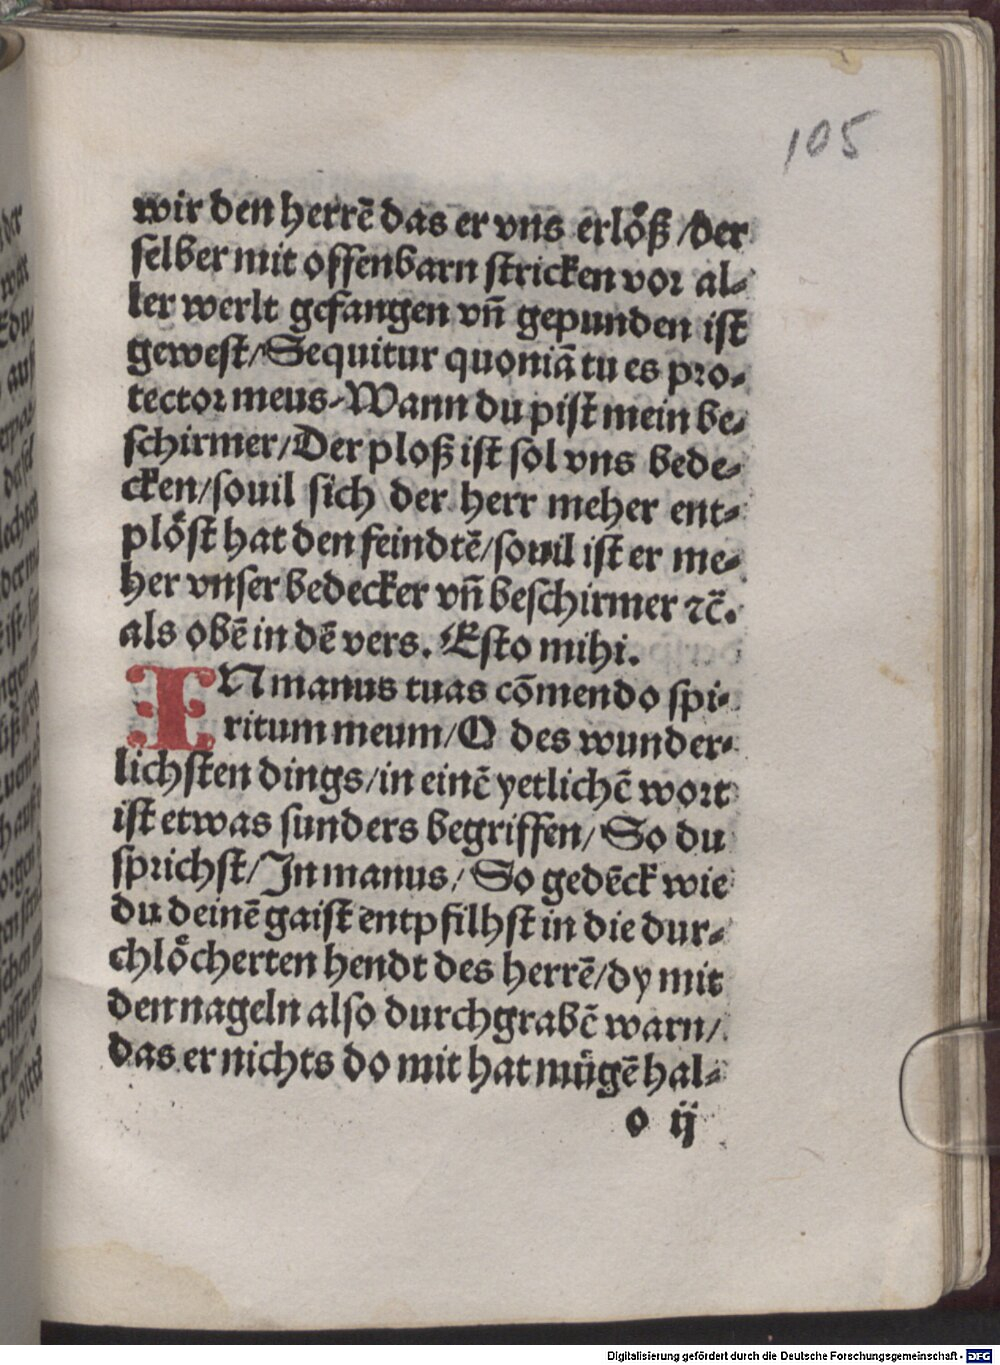 105
wir den herrē das er vns erlöß /der
selber mit offenbarn stricken vor al⸗
ler werlt gefangen vn̄ gepunden ist
gewest/Sequitur quoniā tu es pro⸗
tector meus⸗Wann du pist mein be⸗
schirmer/Der ploß ist sol vns bede⸗
cken/souil sich der herr meher ent⸗
plöst hat den feindtē/souil ist er me⸗
her vnser bedecker vn̄ beschirmer ⁊c̄.
als obē in dē vers. Esto mihi.
IN manus tuas cōmendo spi⸗
ritum meum/O des wunder⸗
lichsten dings/in einē yetlichē wort
ist etwas sunders begriffen/ So du
sprichst/In manus/ So gedēck wie
du deinē gaist entpfilhst in die dur⸗
chlöcherten hendt des herrē/dy mit
den nageln also durchgrabē warn/
das er nichts do mit hat mügē hal⸗
o ij
Digitalisierung gefördert durch die Deutsche Forschungsgemeinschaft - DFG